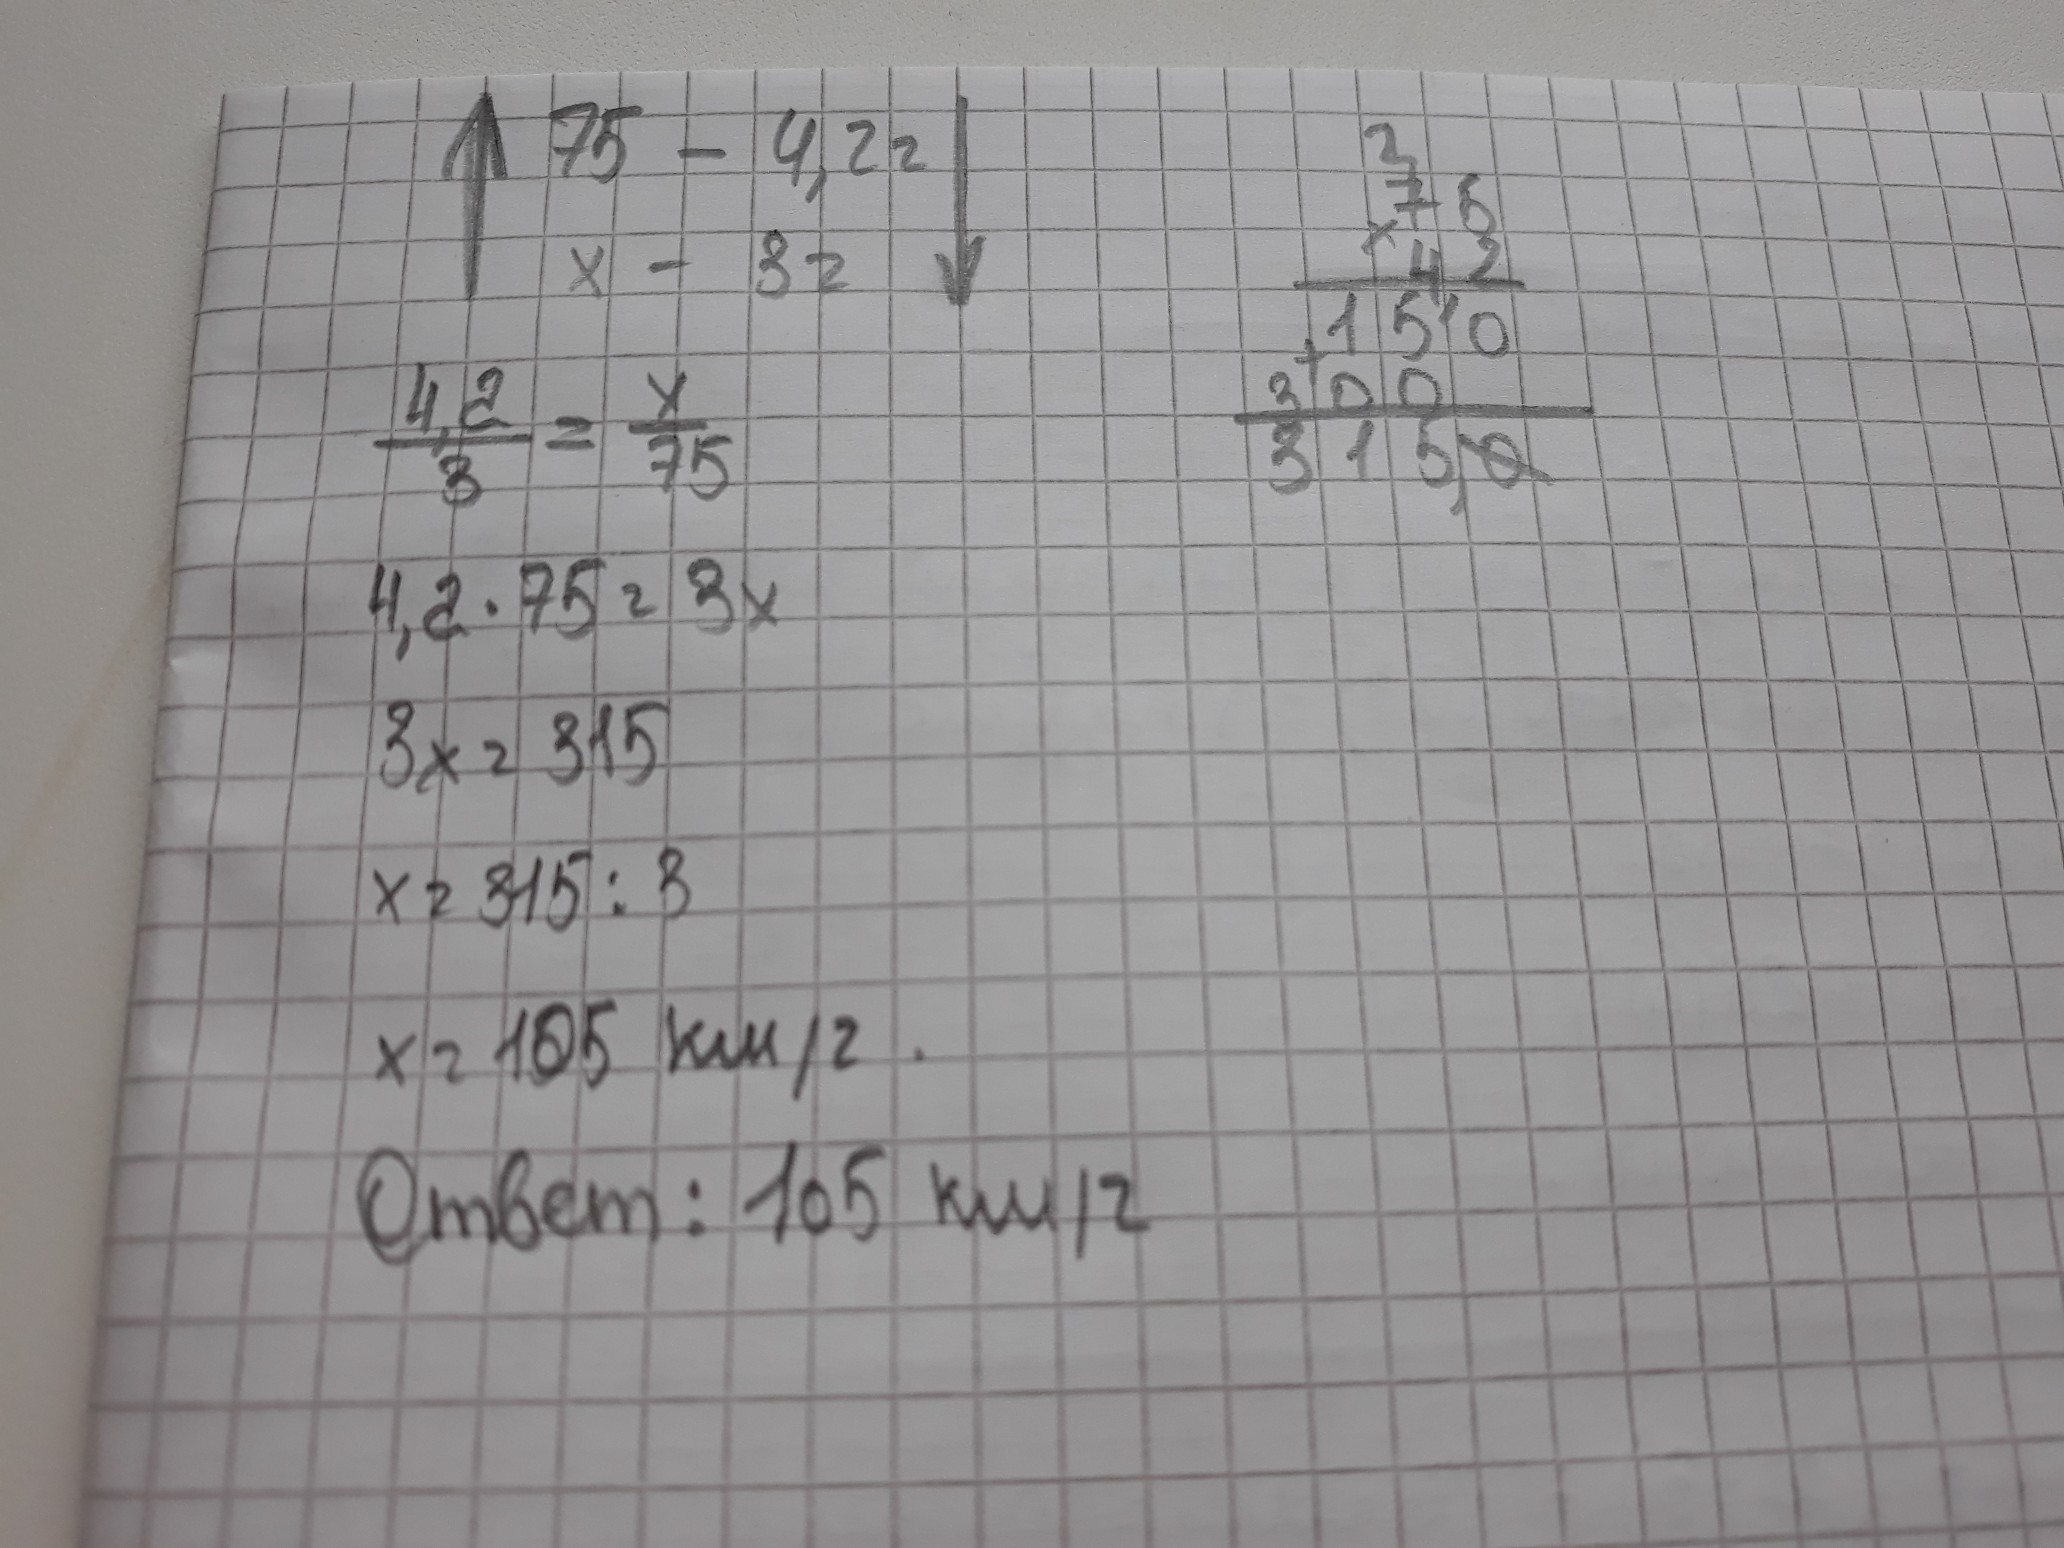 75 - 4,2ч
x - 3ч
4,2/3 = x/75
4,2 · 75 = 3x
3x = 315
x = 315 : 3
x = 105 км/ч.
Ответ: 105 км/ч
2
75
× 42
1510
+
300
315,0